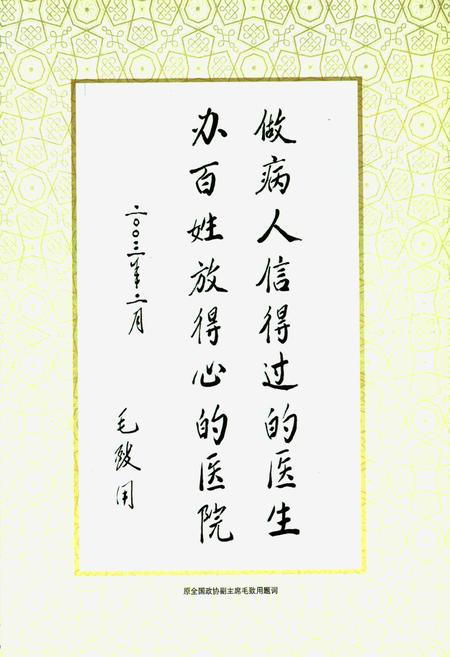 做病人信得过的医生
办百姓放得心的医院
二〇〇三年二月
毛致用
原全国政协副主席毛致用题词